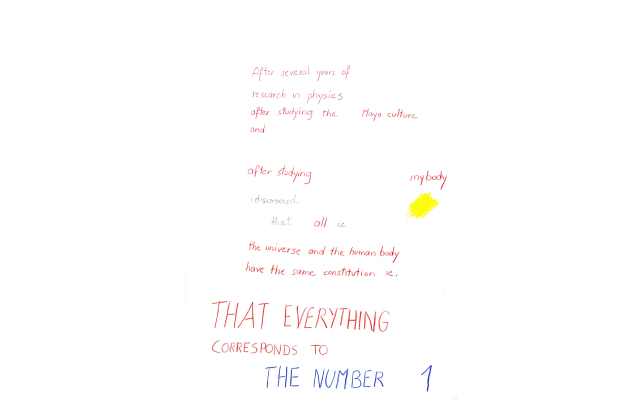 After several years of
research in physics
after studying the Maya culture
and
after studying my body
i discovered
that all ie
the universe and the human body
have the same constitution ie.
THAT EVERYTHING
CORRESPONDS TO
THE NUMBER 1